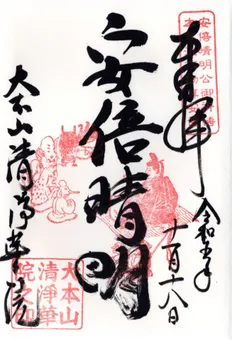 奉拝
令和五年
十一月十八日
安倍晴明
大本山清浄華院
大本山
清浄華
院之印